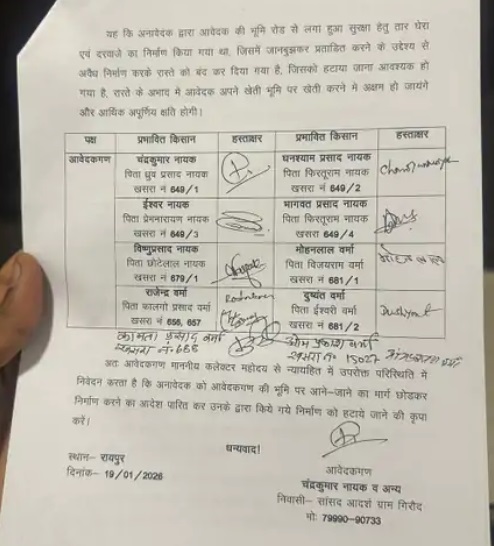 यह कि अनावेदक द्वारा आवेदक की भूमि रोड से लगा हुआ सुरक्षा हेतु तार घेरा
एवं दरवाजे का निर्माण किया गया था, जिसमें जानबुझकर प्रताडित करने के उद्देश्य से
अवैध निर्माण करके रास्ते को बंद कर दिया गया है, जिसको हटाया जाना आवश्यक हो
गया है, रास्ते के अभाद में आवेदक अपने खेती भूमि पर खेती करने मे अक्षम हो जायंगे
और आर्थिक अपुर्णिय क्षति होगी।
पक्ष प्रभावित किसान हस्ताक्षर प्रभावित किसान हस्ताक्षर
आवेदकगण चंद्रकुमार नायक घनश्याम प्रसाद नायक
पिता ध्रुव प्रसाद नायक पिता फिरतूराम नायक
खसरा नं 649/1 खसरा नं 649/2
ईश्वर नायक भागवत प्रसाद नायक
पिता प्रेमनारायण नायक पिता फिरतूराम नायक
खसरा नं 649/3 खसरा नं 649/4
विष्णुप्रसाद नायक मोहनलाल वर्मा
पिता छोटेलाल नायक पिता विजयराम वर्मा
खसरा नं 679/1 खसरा नं 681/1
राजेन्द्र वर्मा दुष्यंत वर्मा Dushyant
पिता कालगो प्रसाद वर्मा पिता ईश्वरी वर्मा
खसरा नं 656, 657 खसरा नं 681/2
कामता प्रसाद वर्मा ओम प्रकाश वर्मा
खसरा नं. 666 खसरा नं०
अतः आवेदकगण माननीय कलेक्टर महोदय से न्यायहित में उपरोक्त परिस्थिति में
निवेदन करता है कि अनावेदक को आवेदकगण की भूमि पर आने-जाने का मार्ग छोडकर
निर्माण करने का आदेश पारित कर उनके द्वारा किये गये निर्माण को हटाये जाने की कृपा
करें।
धन्यवाद!
स्थान– रायपुर
दिनांक– 19/01/2026
आवेदकगण
चंद्रकुमार नायक व अन्य
निवासी– सांसद आदर्श ग्राम गिरौद
मोः 79990-90733